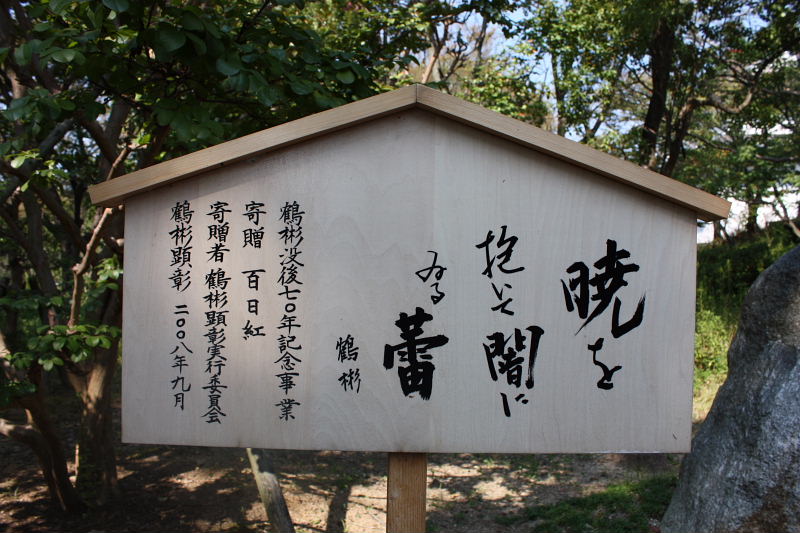 暁を
抱いて闇に
ゐる蕾
鶴彬
鶴彬没後七〇年記念事業
寄贈 百日紅
寄贈者 鶴彬顕彰実行委員会
鶴彬顕彰 二〇〇八年九月